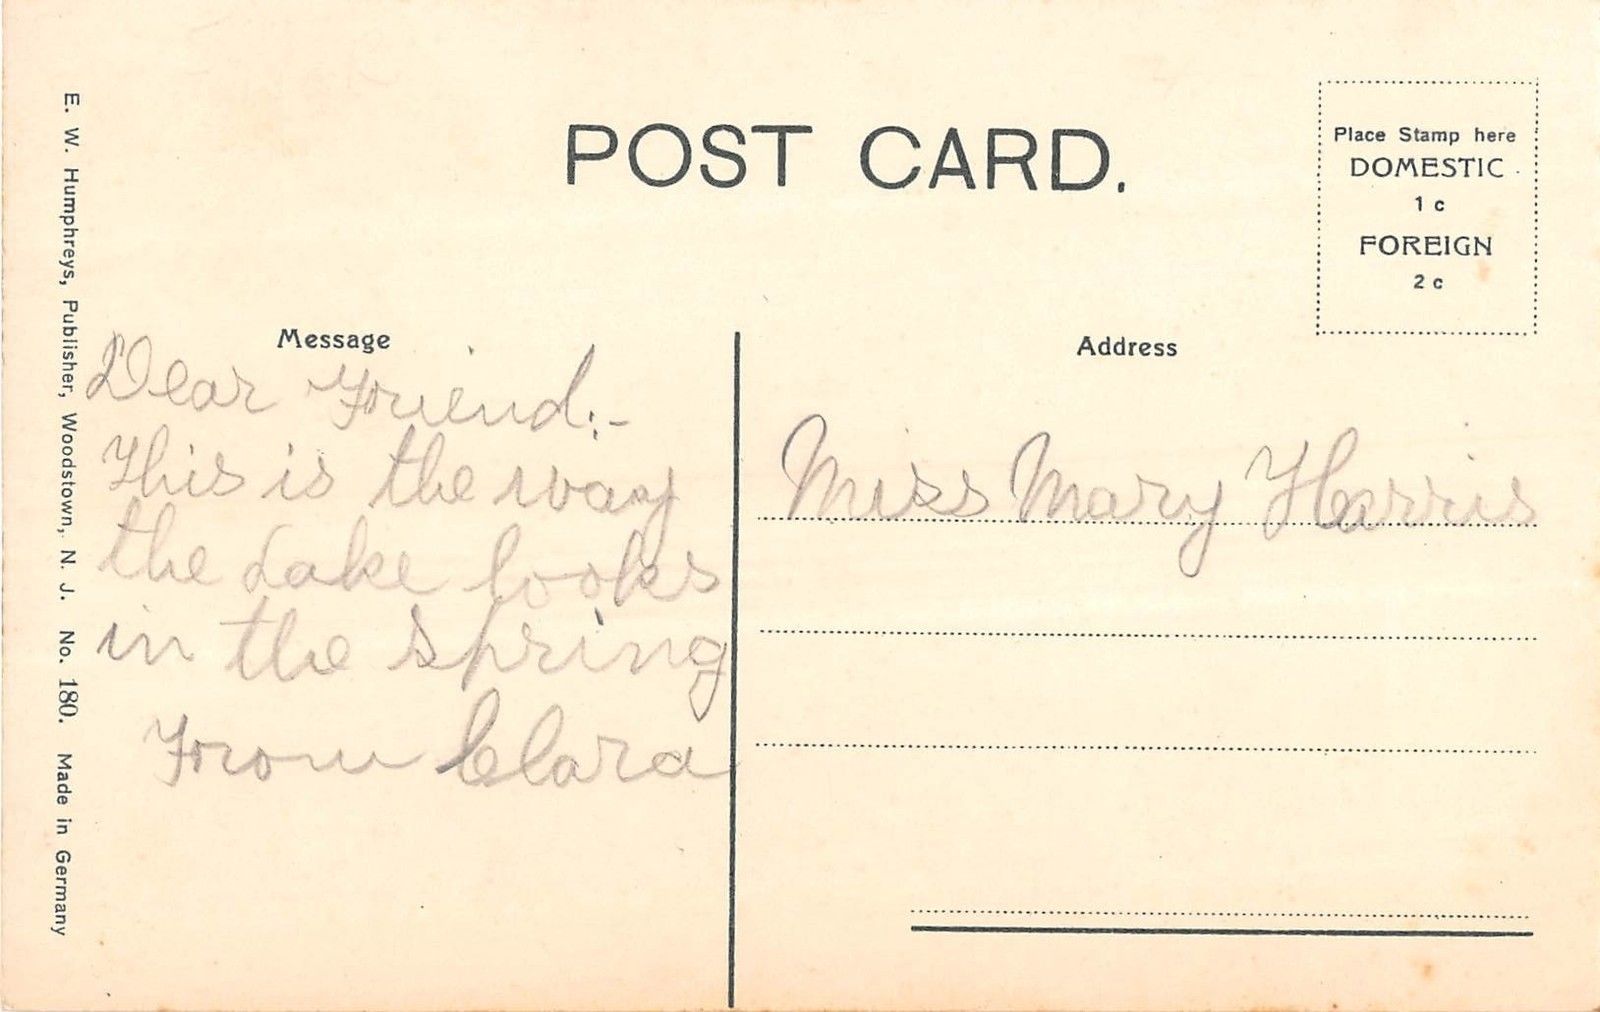 POST CARD.
Place Stamp here
DOMESTIC
1 c
FOREIGN
2 c
E. W. Humphreys, Publisher, Woodstown, N. J. No. 180. Made in Germany
Message
Dear Friend:-
This is the way
the Lake looks
in the Spring
From Clara
Address
Miss Mary Harris